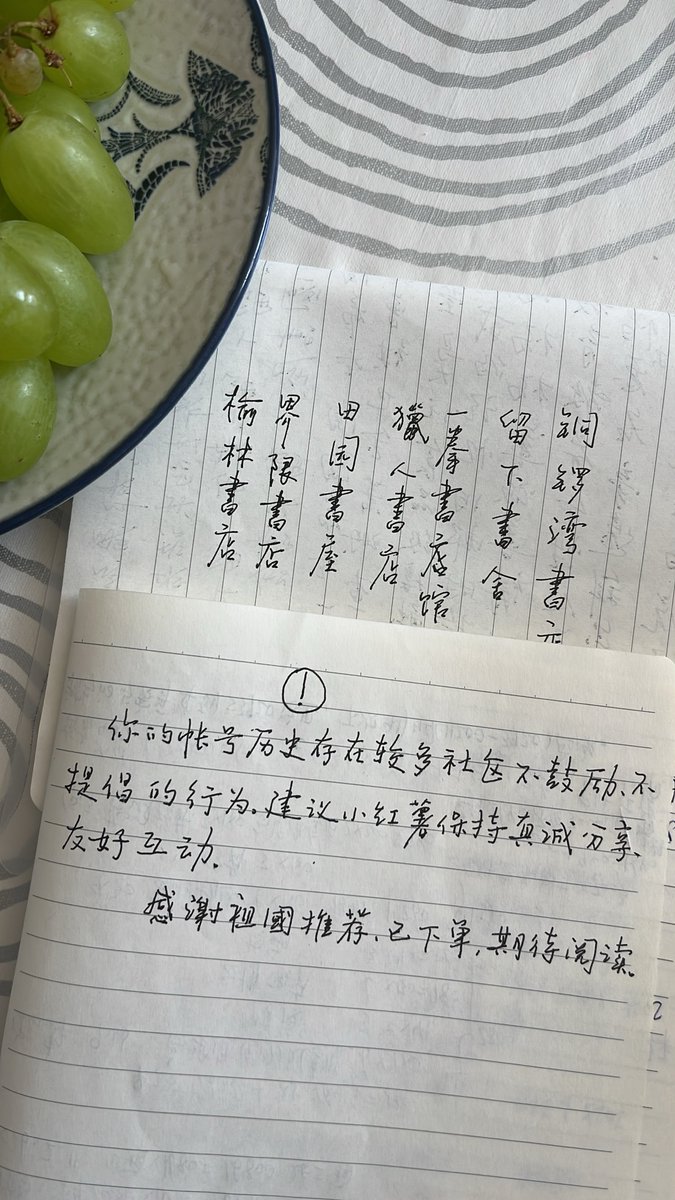 铜锣湾書店
留下書舍
一拳書店館
獵人書店
田园書屋
界限書店
榆林書店
!
你的帐号历史存在较多社区不鼓励、不
提倡的行为。建议小红薯保持真诚分享、
友好互动.
感谢祖國推荐、已下单,期待阅读。
2